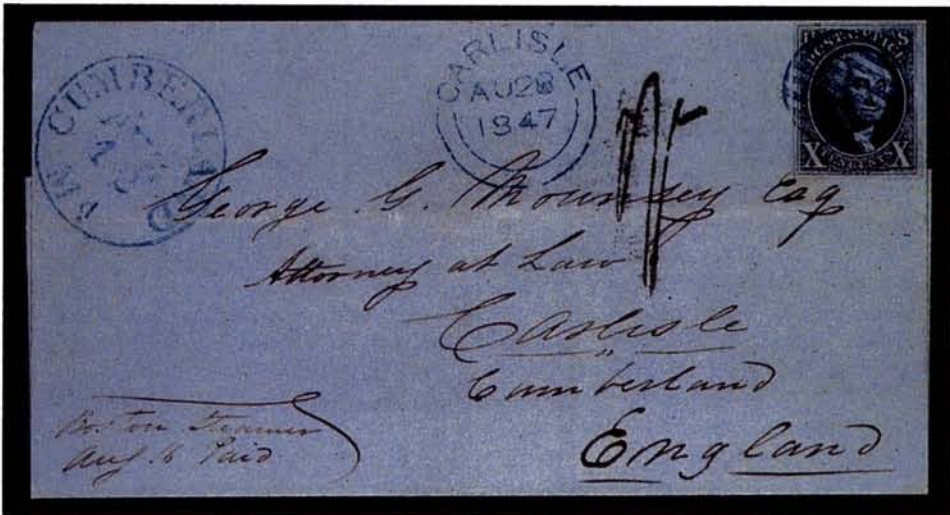 CUMBERLAND MD
CARLISLE
AU 28
1847
POST OFFICE
X X
George G. Mounsey Esq
Attorney at Law
Carlisle
Cumberland
England
Boston Steamer
Aug 16 Paid